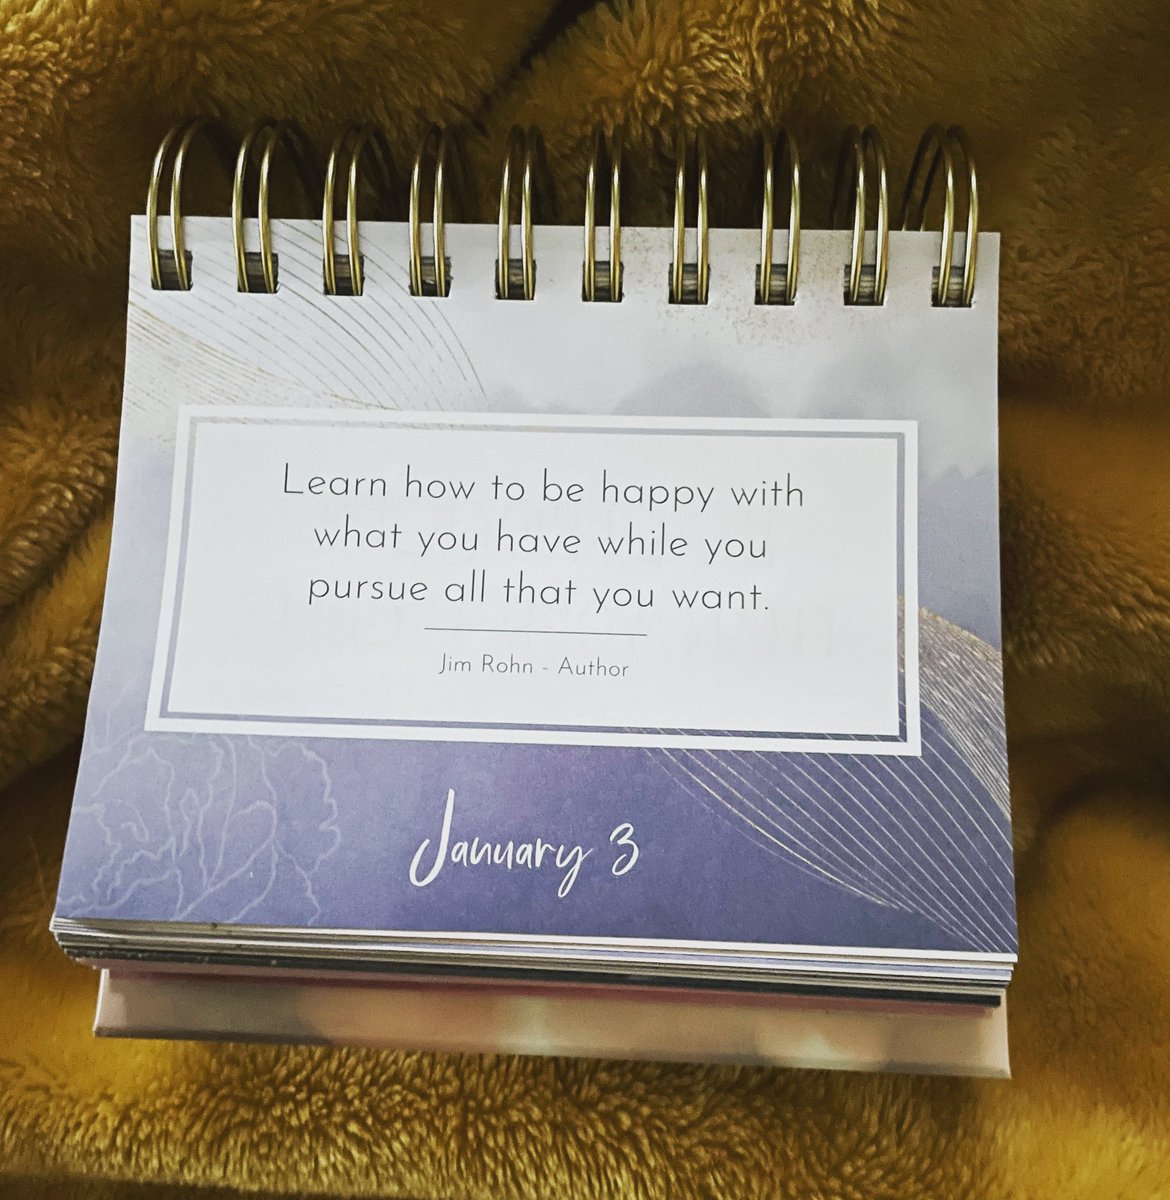 Learn how to be happy with
what you have while you
pursue all that you want.
Jim Rohn - Author
January 3